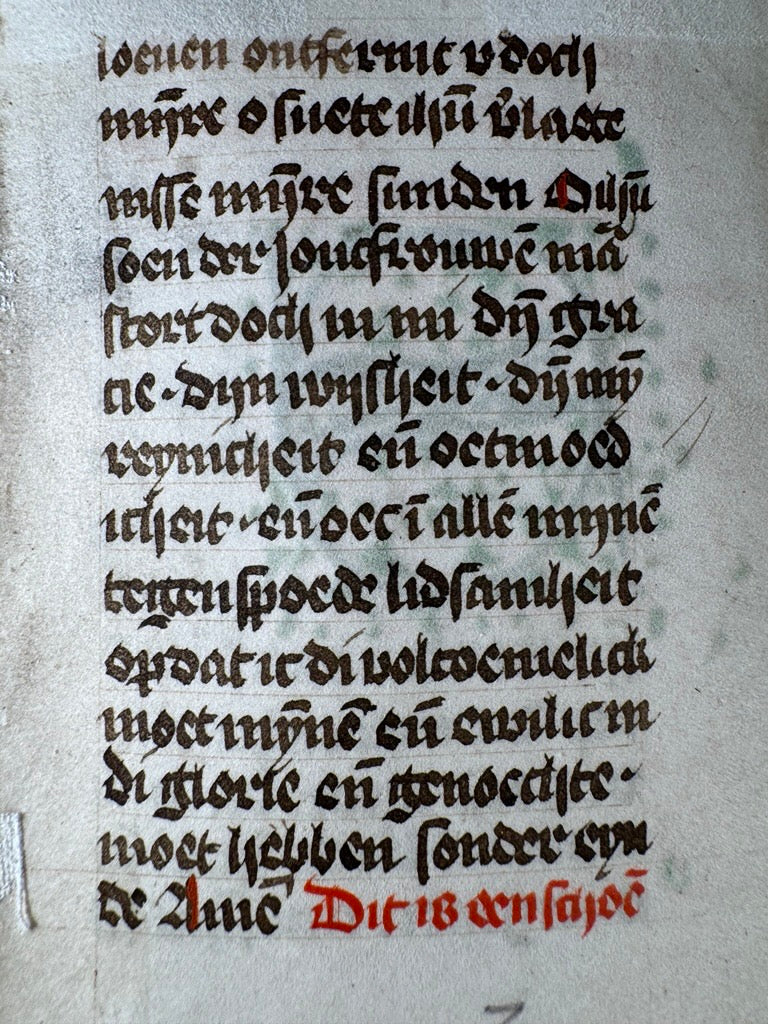 loeuen ontfermt v doch
mÿre o suete ihū v̄laete
nisse mȳre sunden O ihū
soen der joncfrouwē mā
stort doch in mi dȳ gra
cie · dijn wijsheit · dȳ
reynicheit en̄ oetmoed
icheit · en̄ oec ī allē mynē
tegenspoede lidsamheit
opdat ic di volcoemelick
moet mȳnē en̄ ewilic in
di glorie en̄ genoechte ·
moet hebben sonder eyn
de Amē Dit is een schoē